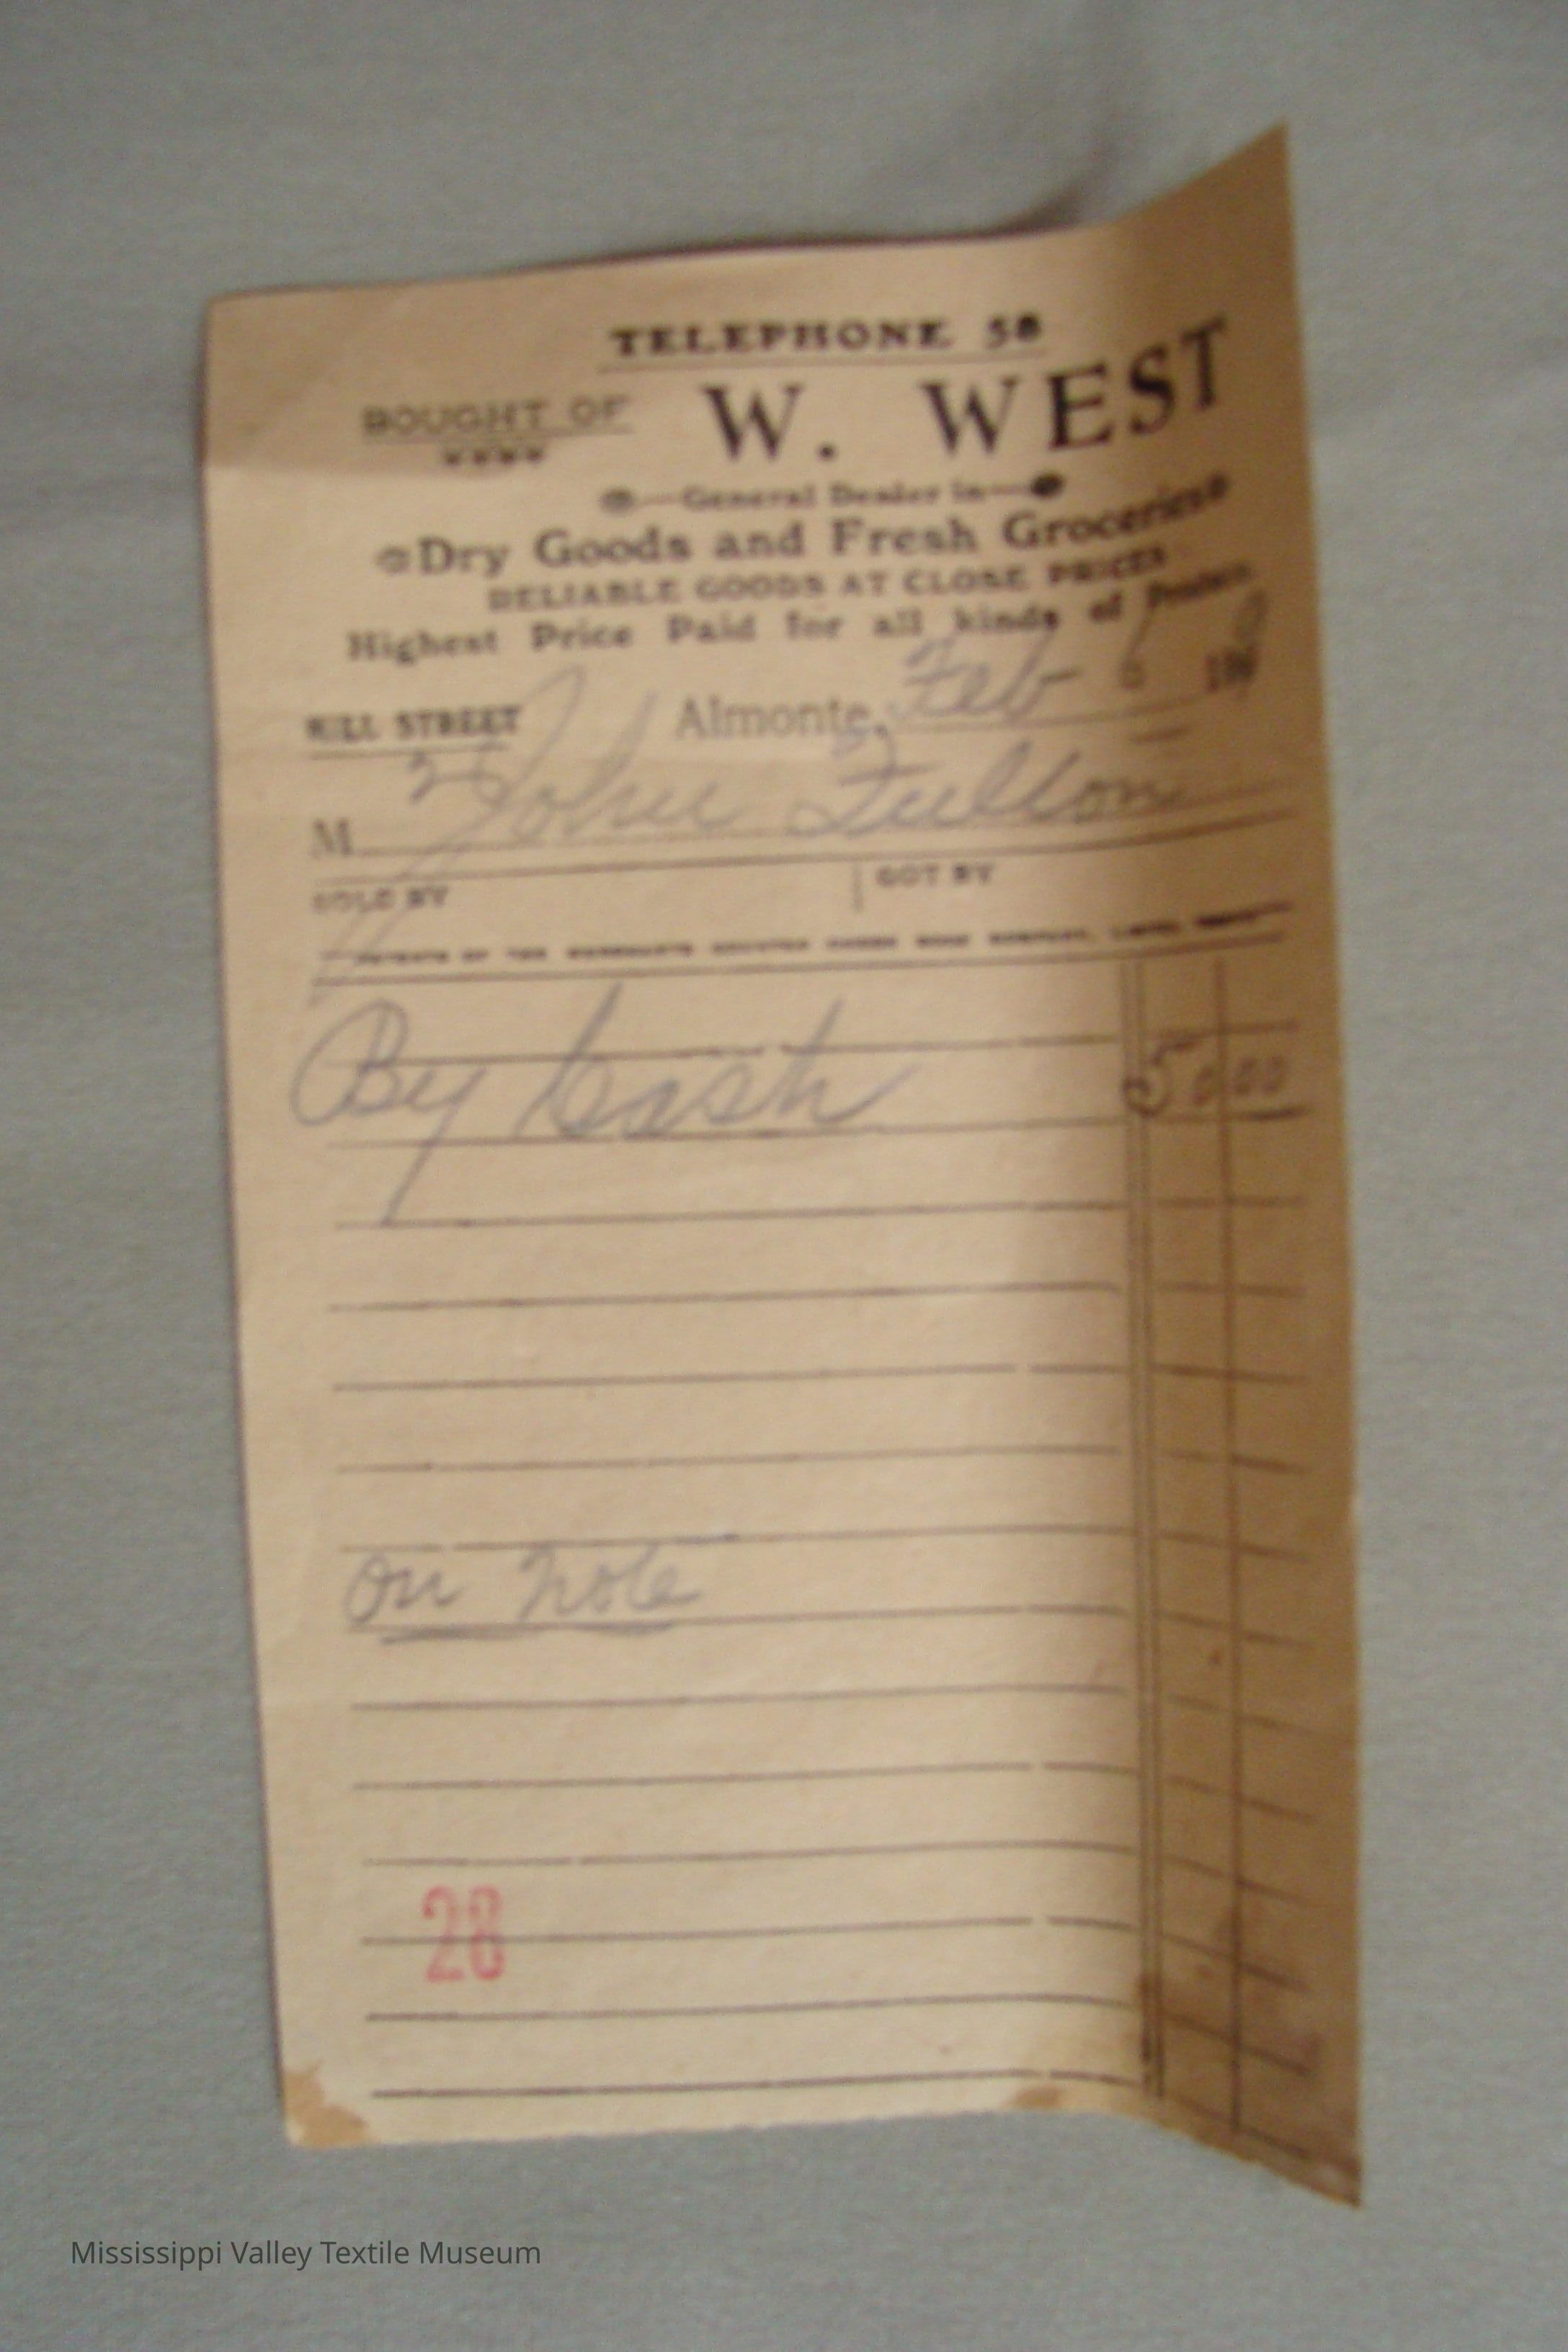 TELEPHONE 58
BOUGHT OF W. WEST
General Dealer in
Dry Goods and Fresh Groceries
RELIABLE GOODS AT CLOSE PRICES
Highest Price Paid for all kinds of Produce
MILL STREET Almonte, Feb 6 190
M John Fulton
SOLD BY GOT BY
OF THE COUNTER CHECK BOOK COMPANY, LIMITED
By Cash 50 00
on note
28
Mississippi Valley Textile Museum